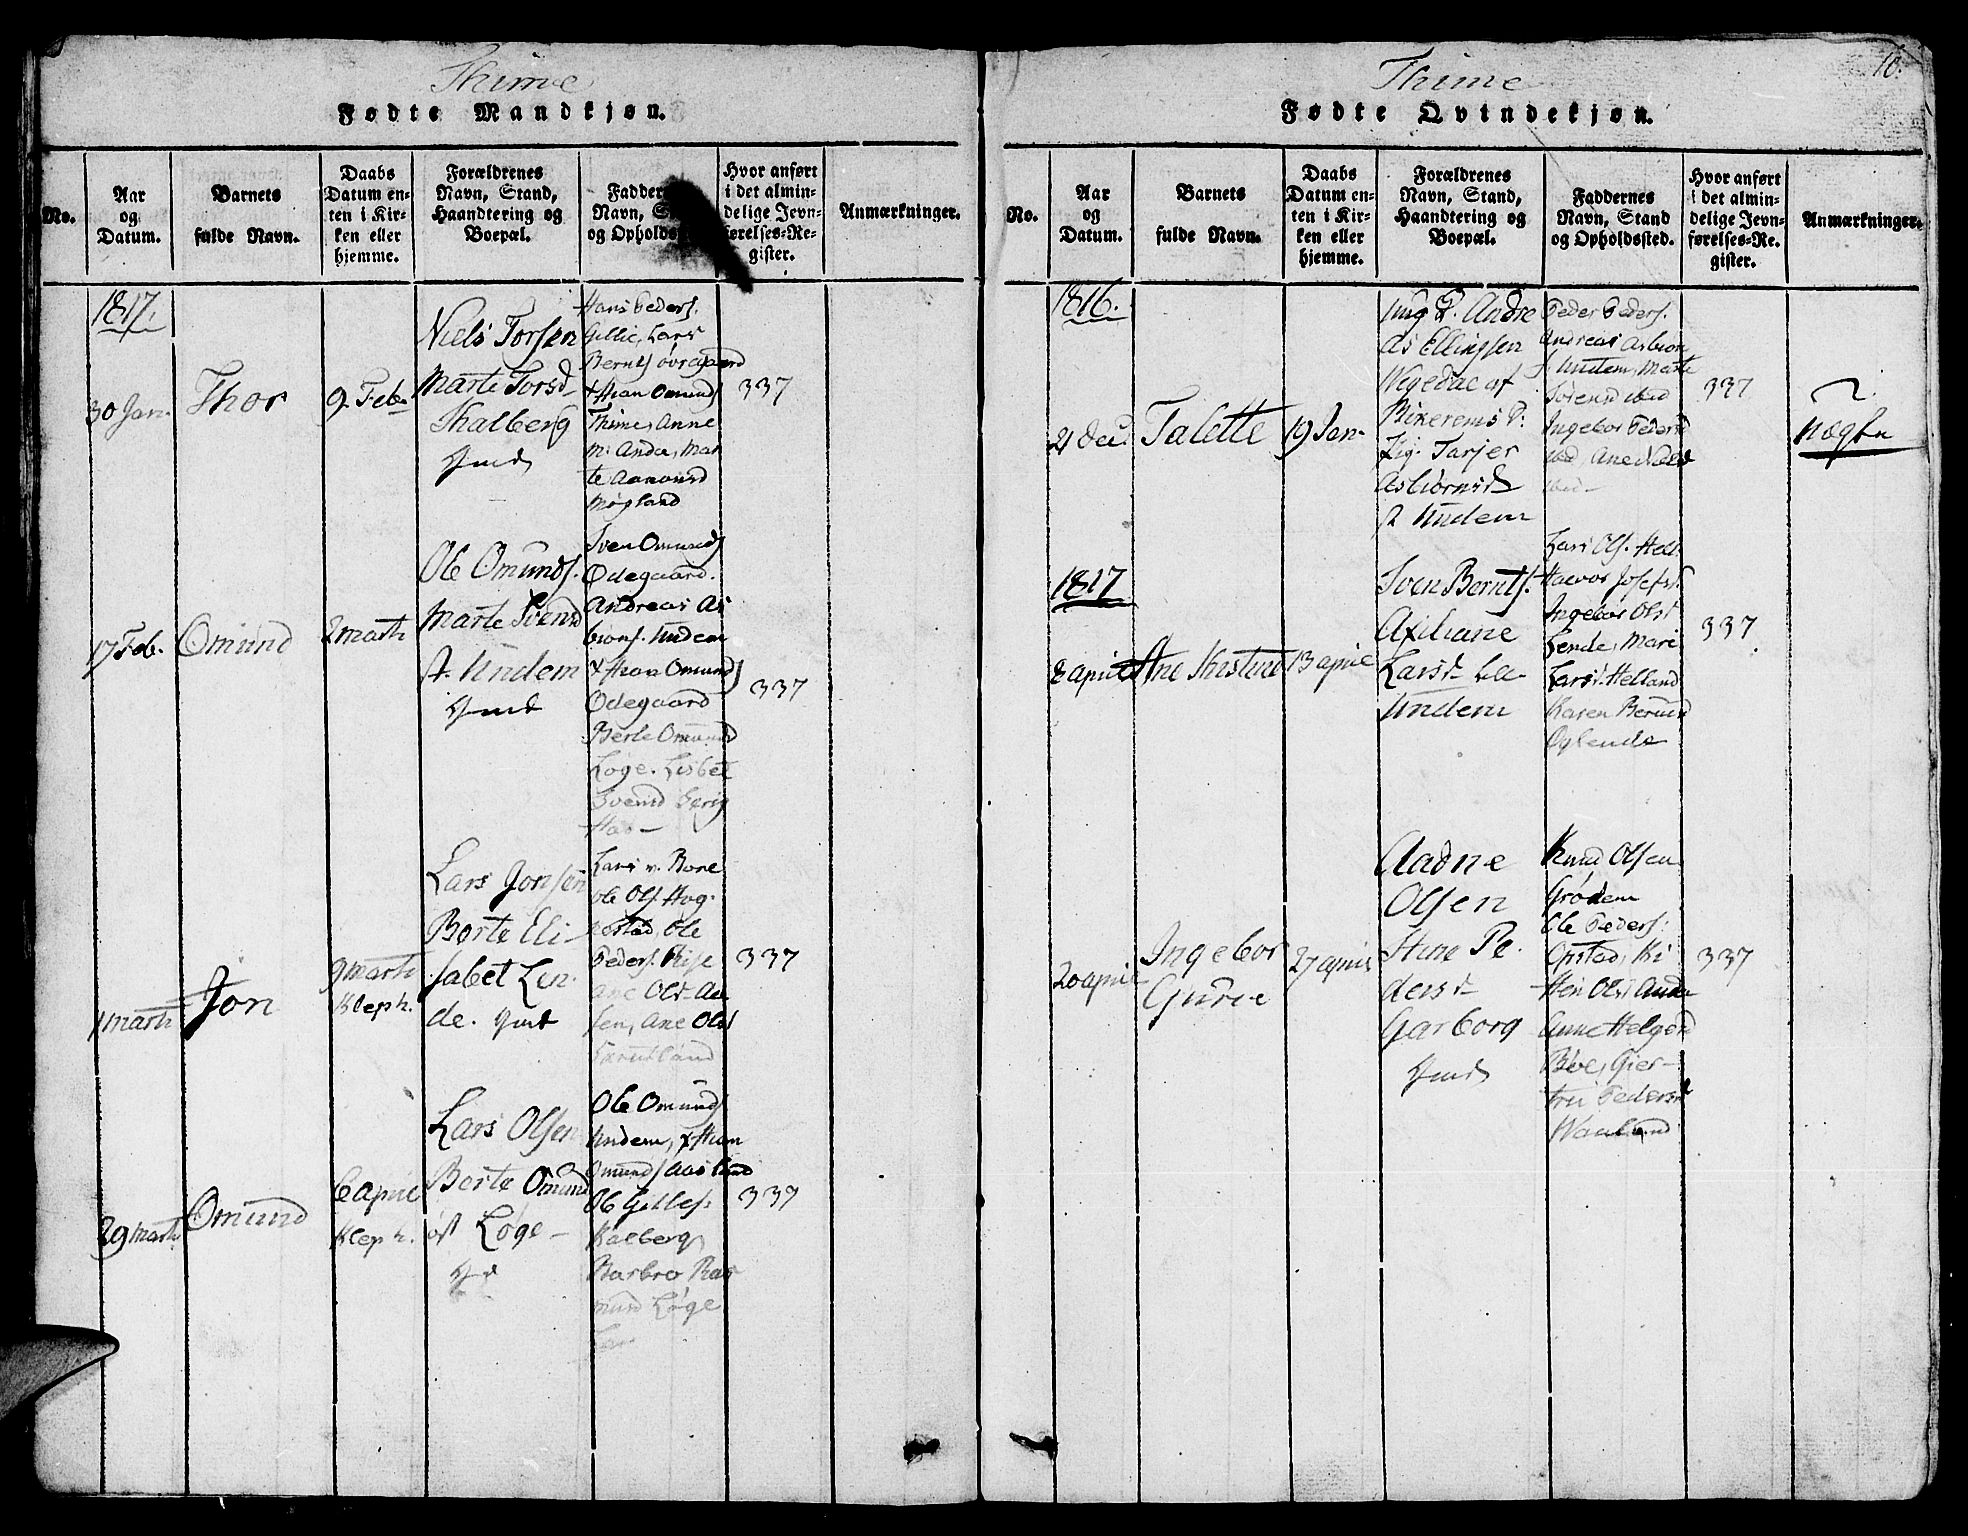 Thime
Fødte Mandkjøn.
No.
Aar
og
Datum.
Barnets
fulde Navn.
Daabs
Datum en-
ten i Kir-
ken eller
hjemme.
Forældrenes
Navn, Stand,
Haandtering og
Boepæl.
Fadder
Navn, S
og Opholds
Hvor anført
i det almin-
delige Jevn-
førelses-Re-
gister.
Anmærkninger.
1817.
30 Jan.
Thor
9 Feb.
Niels Torsen
Marte Torsd
Thalberg
Hans Peders.
Gellie, Lars
Bernts Øvregaard
Omunds
Thime, Anne
M. Anda, Mar
te Aamunsd
Møgland
337
17 Feb.
Omund
2 Marti
Ole Omunds.
Marte Svensd
Undem
Sven Omunds
Ødegaard.
Andreas As
bions. Undem
Omunds
Ødegaard
Berte Omunsd
Løge. Lisbet
Svensd
337
1 Marti
Jon
9 Marti
Klep k.
Lars Jonsen
Berte Eli-
sabet Len-
de.
Lars v. Bore
Ole Ols. Hog-
nestad, Ole
Peders. Rise
Ane Olsd
Ane Olsd
337
29 Marti
Omund
6 April
Klep k.
Lars Olsen
Berte Omunsd
øst Løge
Ole Omunds
Undem,
Omunds Aasland
Ole Gilles.
Kalberg
Barbro Ras
musd Løge
337
Thime
10.
Fødte Qvindekjøn.
No.
Aar
og
Datum.
Barnets
fulde Navn.
Daabs
Datum en-
ten i Kir-
ken eller
hjemme.
Forældrenes
Navn, Stand,
Haandtering og
Boepæl.
Faddernes
Navn, Stand
og Opholdssted.
Hvor anført
i det almin-
delige Jevn-
førelses-Re-
gister.
Anmærkninger.
1816.
21 Dec.
Talette
19 Jan
Ung K. Andre
as Ellingsen
af
P:
Pig. Tarjer
Asbiørnsd
Undem
Peder Peders.
Andreas Asbion
s Undem, Marte
Sørensd ibid
Ingebor Pedersd
ibid
337
1817
8 April
Ane Kistine
13 April
Sven Bernts.
Axeliane
Larsd.
Undem
Lars Ols. Hell.
Halvor Josefs.
Ingebor Olsd
Lende, Mari
Larsd. Helland
Karen Berntsd
Øglende
337
20 April
Ingebor
Gurie
27 April
Aadne
Olsen
Stine Pe-
dersd
Garborg
Knud Olsen
Grødem
Ole Peders.
Opstad, Ki
sten Olsd Anda
Anne Helgesd
Bøe, Gier-
tru Pedersd
337